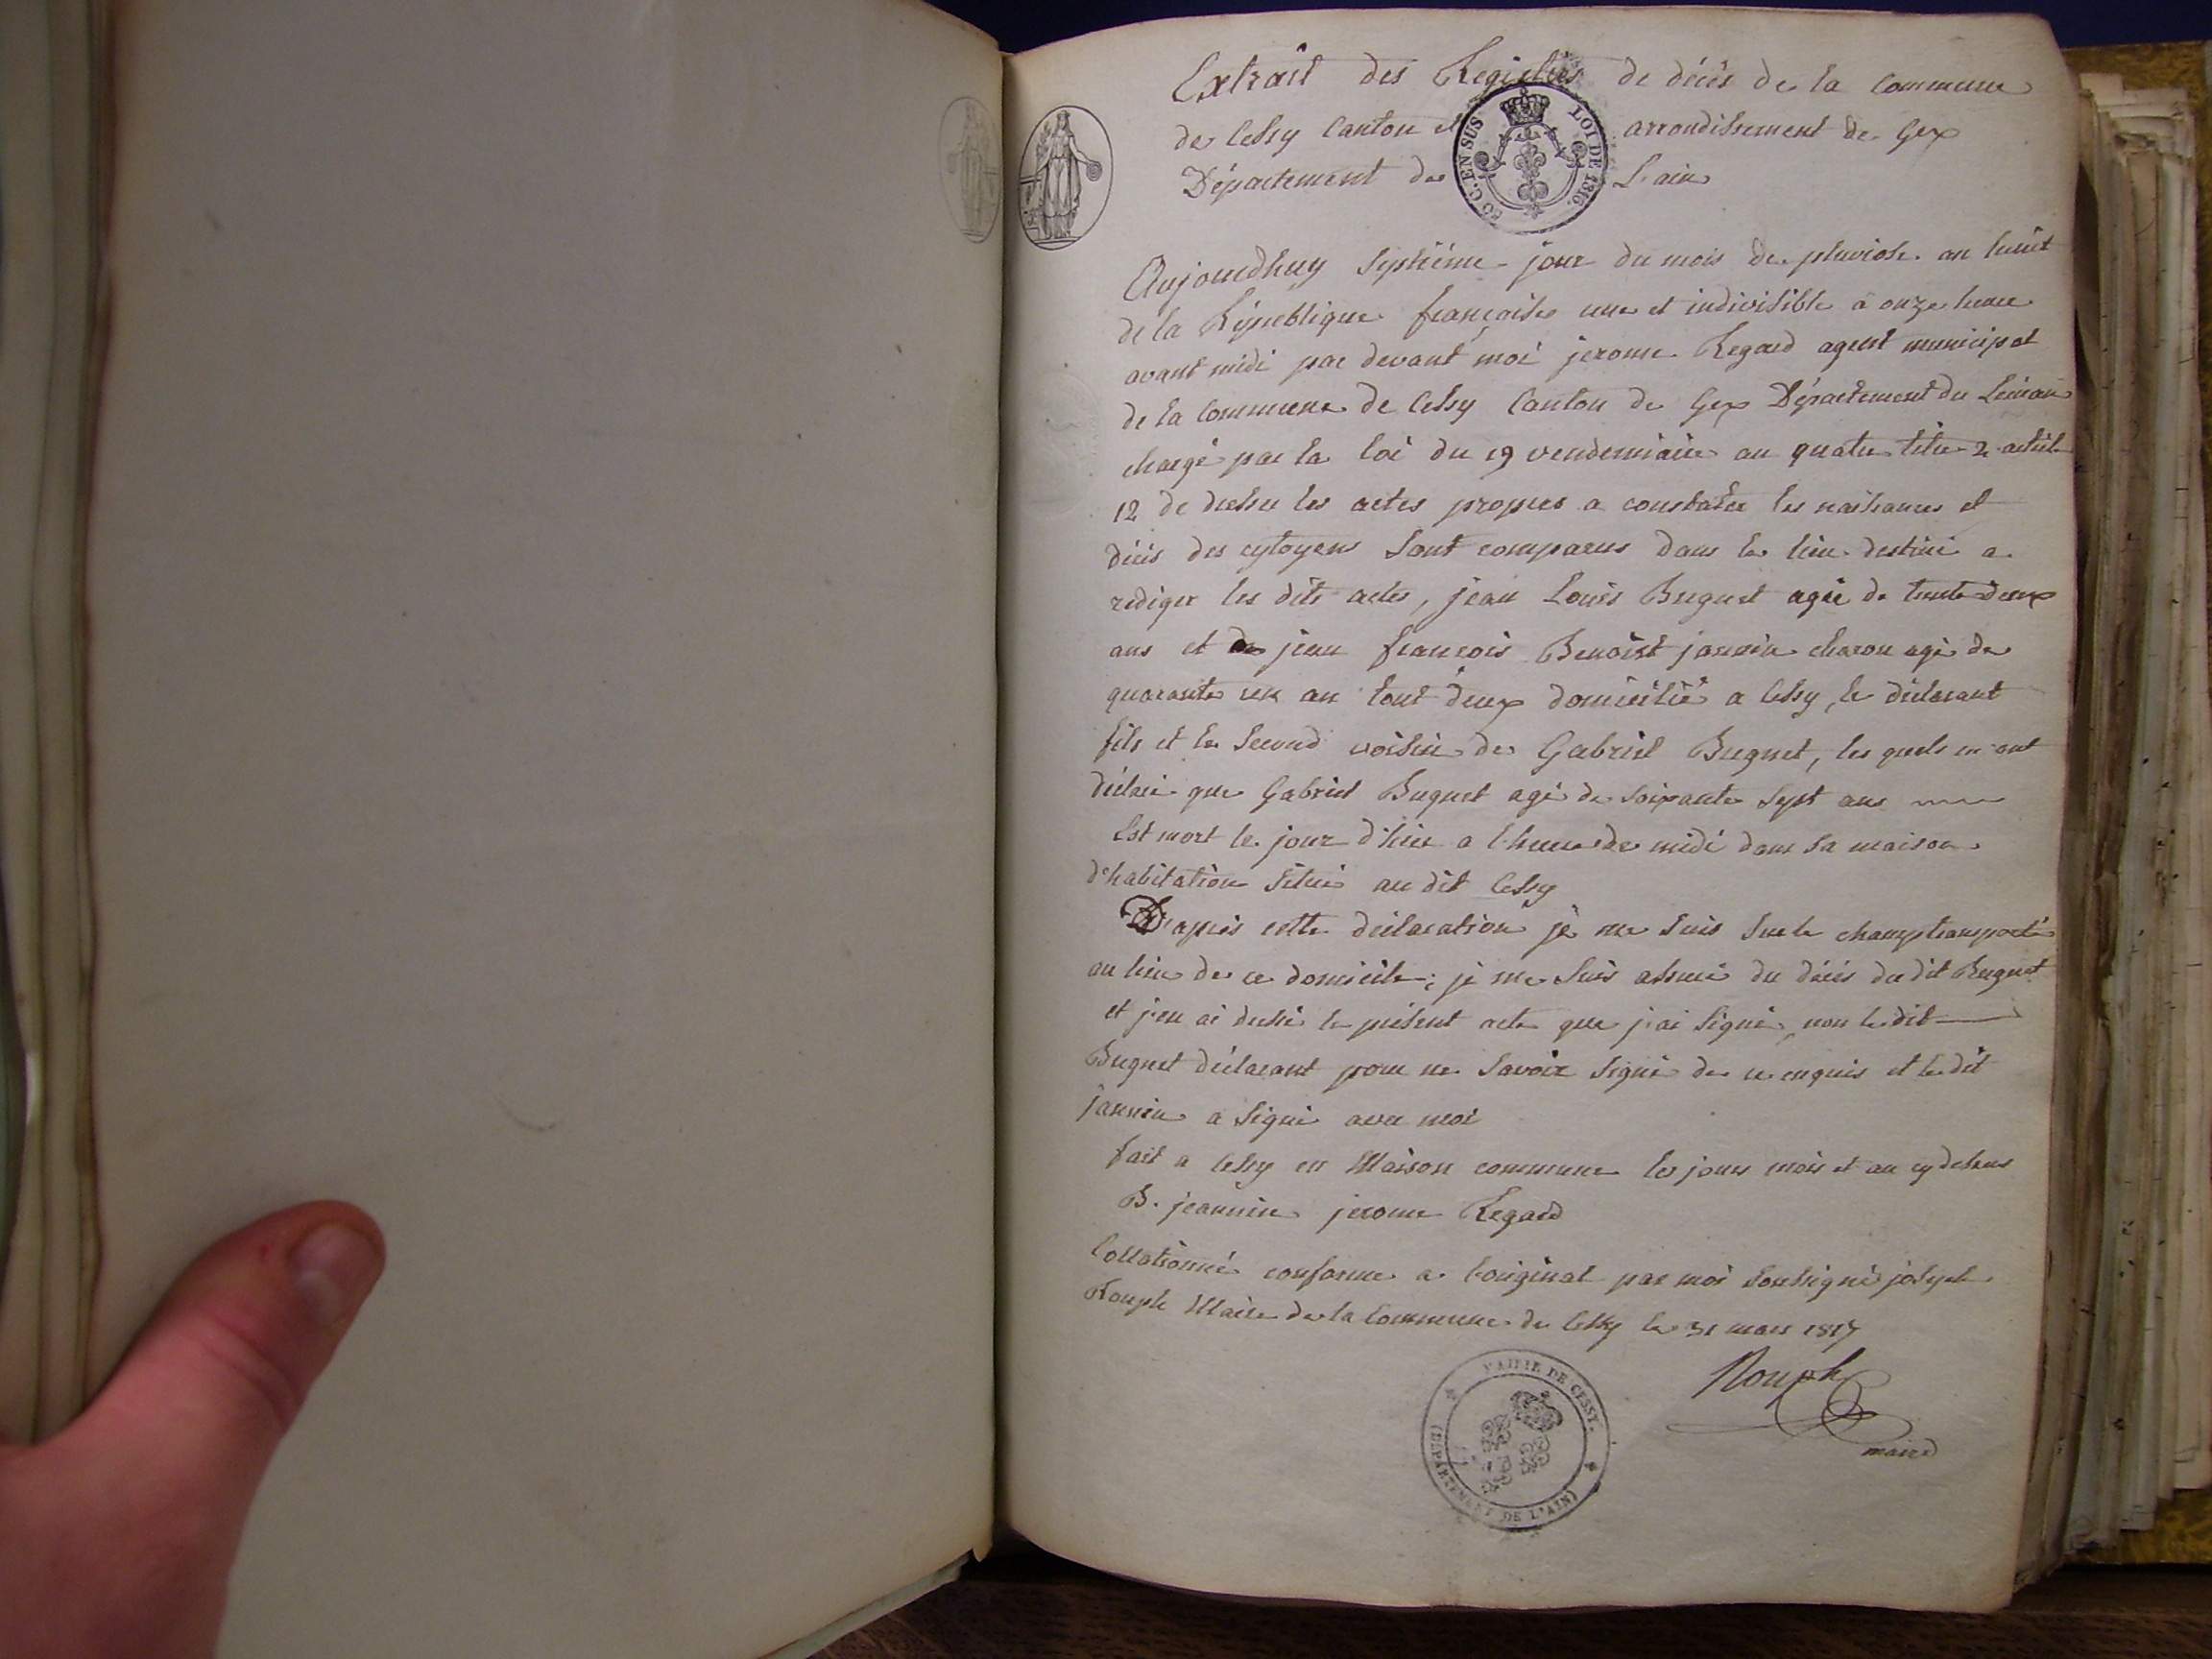 Extrait des Registres de décès de la commune
de Cessy Canton et arrondissement de Gex
Département de L'ain
EN SUS LOI DE 1816.
Aujourdhuy septième jour du mois de pluviose an huit
de la République française une et indivisible à onze heure
avant midi par devant moi jerome Regard agent municipal
de la Commune de Cessy Canton de Gex Département du Léman
chargé par la loi du 19 vendemiaire an quatre titre 2 article
12 de dresser les actes propres a constater les naissances et
décès des cytoyens sont comparus dans le lieu destiné a
rediger les dits actes, jean Louis Buguet agée de trente deux
ans et jean françois Benoist jannin charon agé de
quarante six an tout deux domicilié a Cessy, le déclarant
fils et le second voisin de Gabriel Buguet, les quels m'ont
déclaré que Gabriel Buguet agé de soixante sept ans
Est mort le jour d'hier a l'heure de midi dans sa maison
d'habitation situé au dit Cessy
D'apres cette déclaration je me suis sur le champ transporté
au lieu de ce domicile; je me suis assuré du décès du dit Buguet
et j'en ai dressé le présent acte que j'ai signé, non le dit
Buguet déclarant pour ne savoir signé de ce enquis et le dit
jannin a signé avec moi
fait a Cessy en Maison commune les jours mois et an cy dessus
B. jeannin jerome Regard
Collationné conforme a l'original par moi soussigné joseph
Rouph Maire de la Commune de Cessy le 31 mars 1817
Rouph
maire
MAIRIE DE CESSY.
(DÉPARTEMENT DE L'AIN)